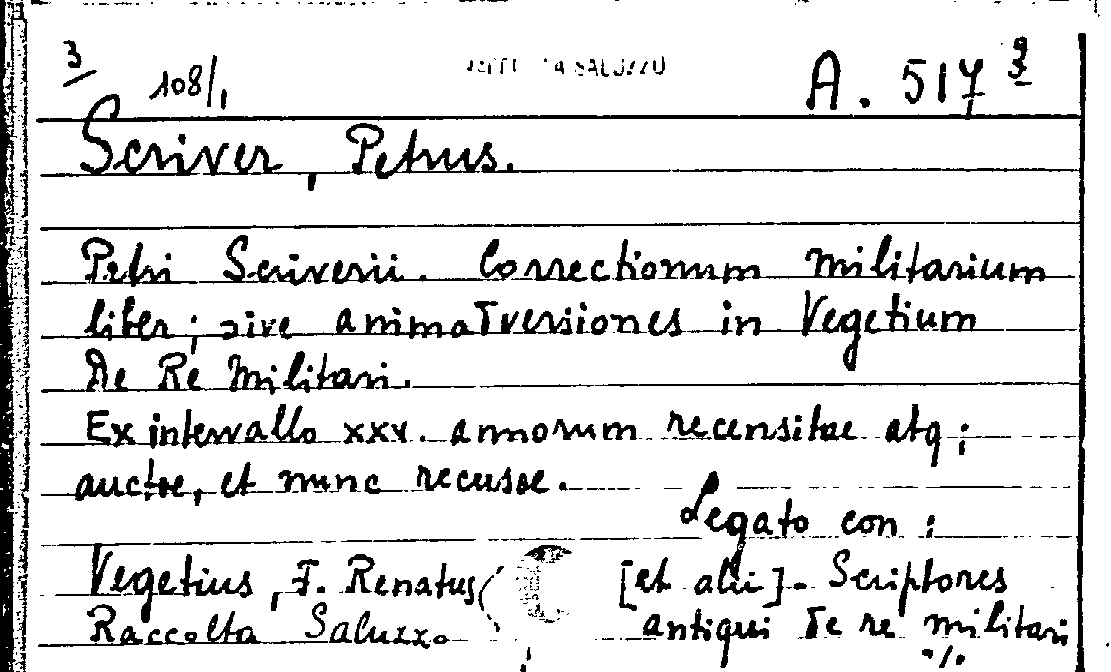 3
108/1
A. 517 3
Scriver, Petrus.
Petri Scriverii. Correctionum militarium
liber; sive animadversiones in Vegetium
De Re Militari.
Ex intervallo xxv. annorum recensitae atq;
auctae, et nunc recusae.
Legato con:
Vegetius, F. Renatus [et alii]. - Scriptores
antiqui de re militari
Raccolta Saluzzo
./.